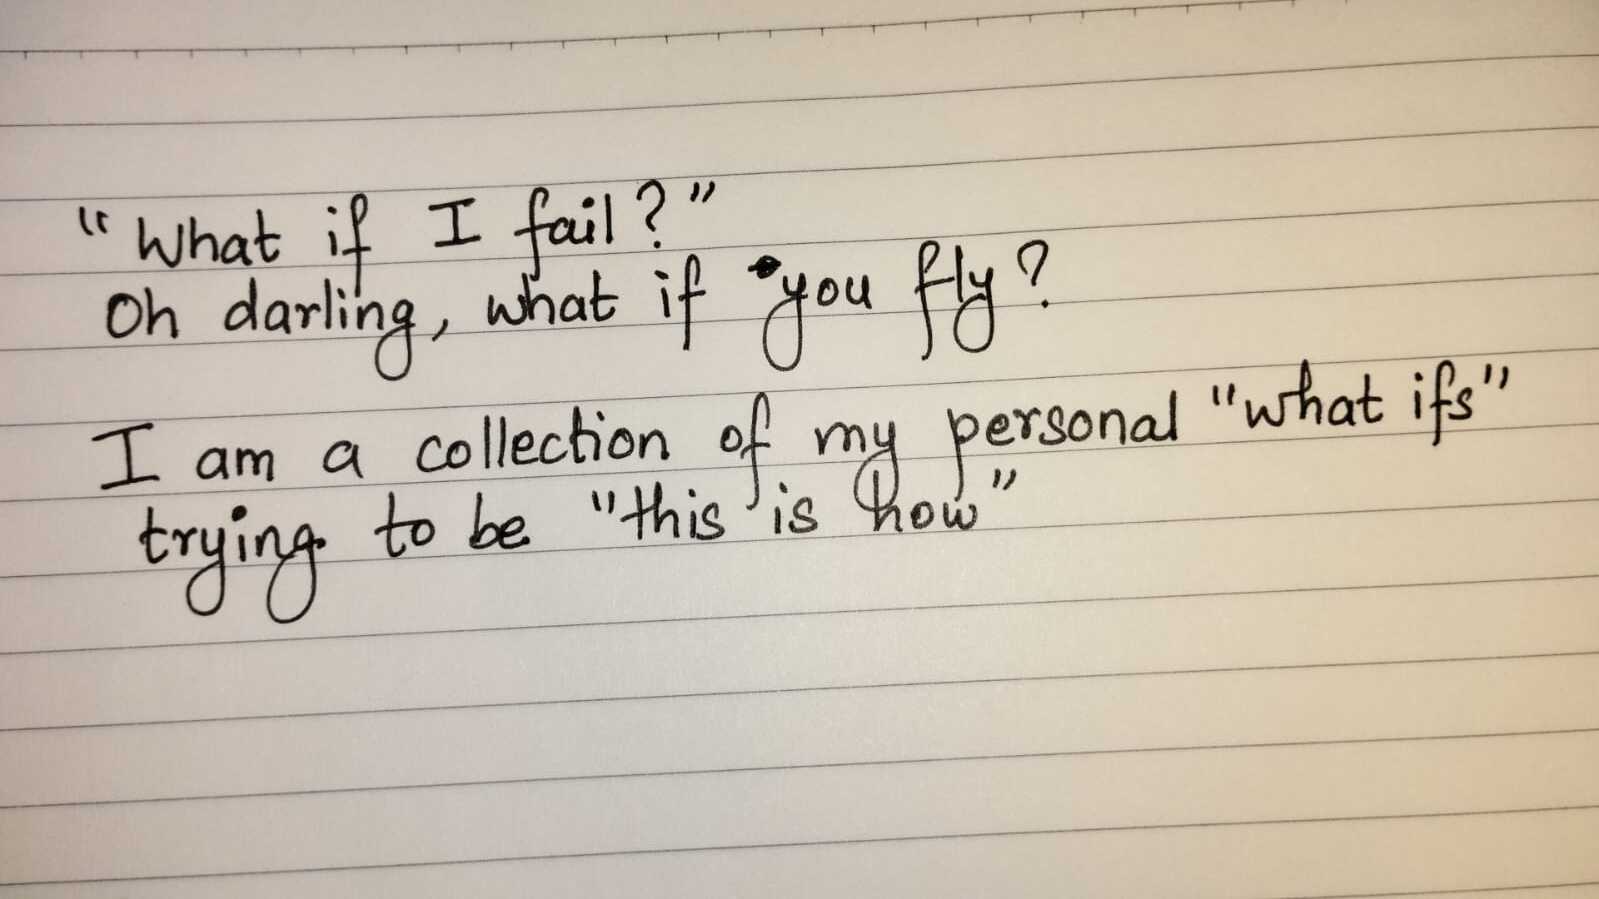 "What if I fail?"
Oh darling, what if you fly?
I am a collection of my personal "what ifs"
trying to be "this is how"